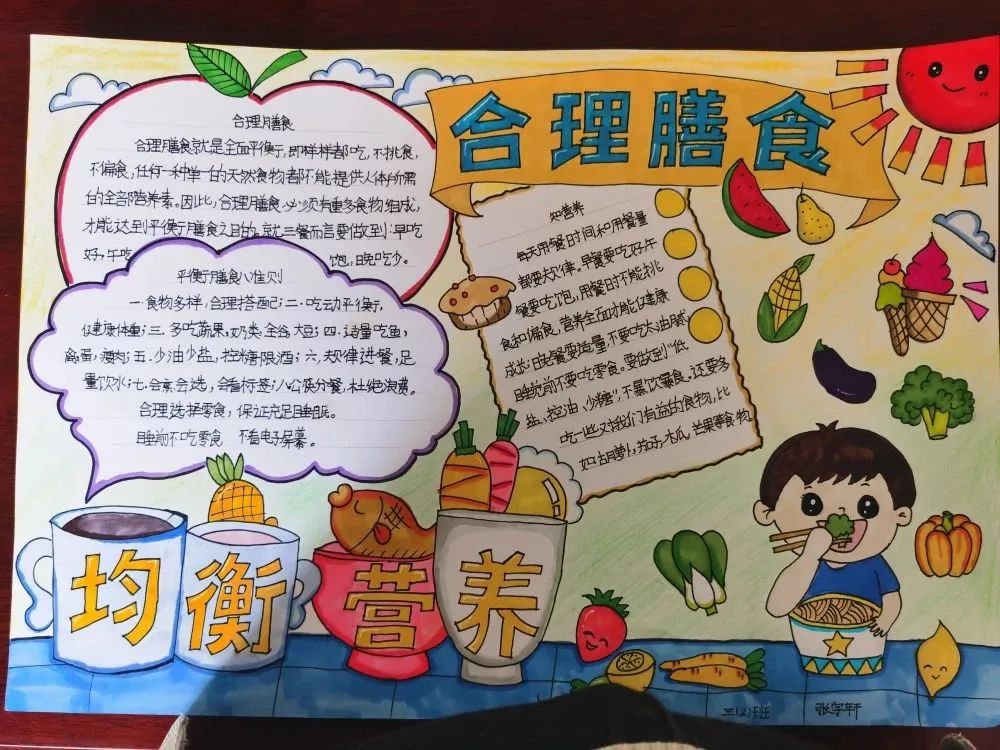 合理膳食
合理膳食
合理膳食就是全面平衡,即样样都吃,不挑食,
不偏食,任何一种单一的天然食物都不能提供人体所需
的全部营养素。因此,合理膳食必须有重多食物组成,
才能达到平衡膳食之目的,就三餐而言要做到:早吃
好,午吃
饱,晚吃少。
平衡膳食八准则
一·食物多样,合理搭配;二·吃动平衡,
健康体重;三·多吃蔬果,奶类、全谷、大豆;四·适量吃鱼,
禽,蛋,瘦肉;五·少油少盐,控糖限酒;六·规律进餐,足
量饮水;七·会烹会选,会看标签;八·公筷分餐,杜绝浪费。
合理选择零食,保证充足睡眠。
睡前不吃零食 不看电子屏幕。
知营养
每天用餐时间和用餐量
都要规律。早餐要吃好,午
餐要吃饱,用餐时不能挑
食和偏食,营养全面才能健康
成长;晚餐要适量,不要吃太油腻,
睡觉前不要吃零食。要做到“低
盐、控油、少糖”,不暴饮暴食。还要多
吃一些对我们有益的食物,比
如:胡萝卜,茄子,木瓜,芒果等食物
均衡营养
三(2)班 张宇轩